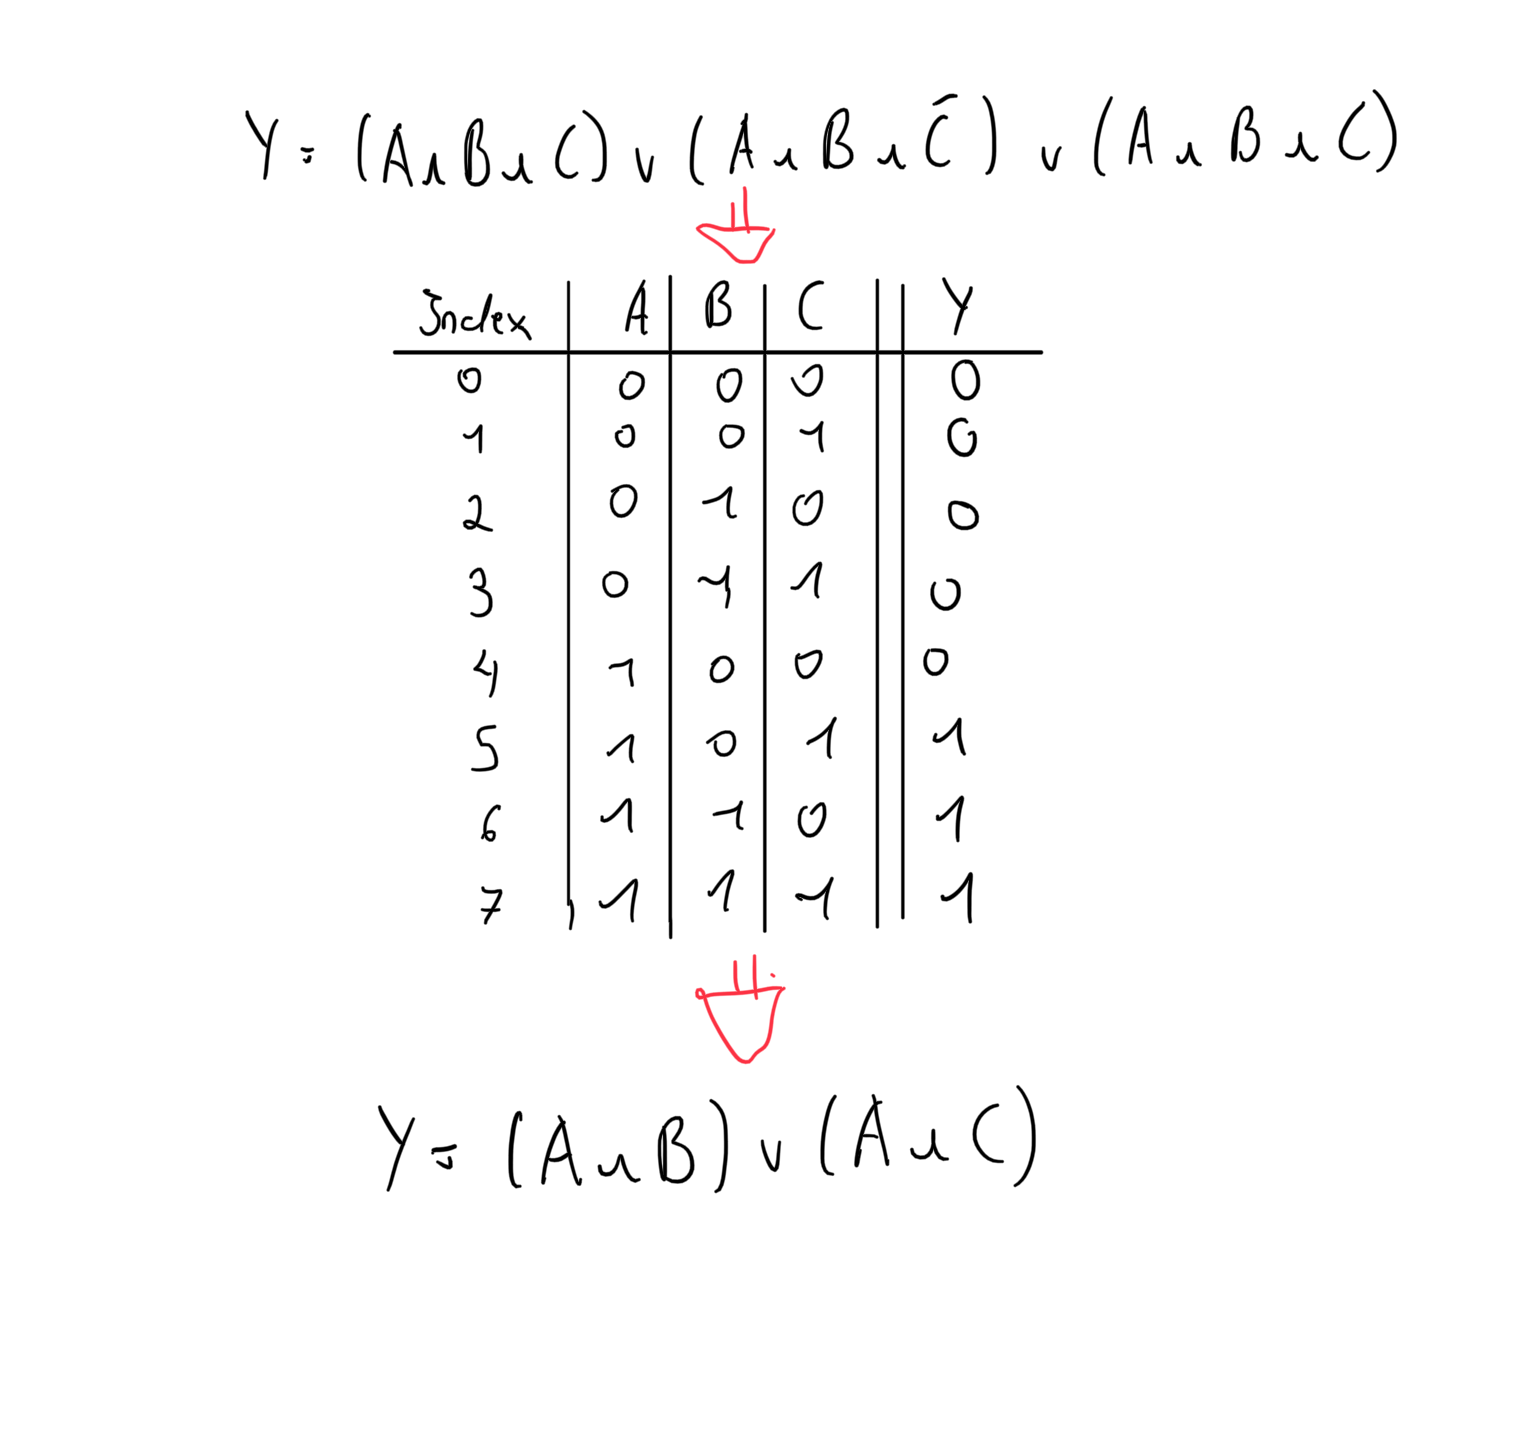 Y = (A ∧ B ∧ C) ∨ (A ∧ B ∧ C̄) ∨ (A ∧ B ∧ C)
Index A B C Y
0 0 0 0 0
1 0 0 1 0
2 0 1 0 0
3 0 1 1 0
4 1 0 0 0
5 1 0 1 1
6 1 1 0 1
7 1 1 1 1
Y = (A ∧ B) ∨ (A ∧ C)